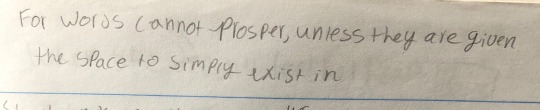 For words cannot prosper, unless they are given
the space to simply exist in